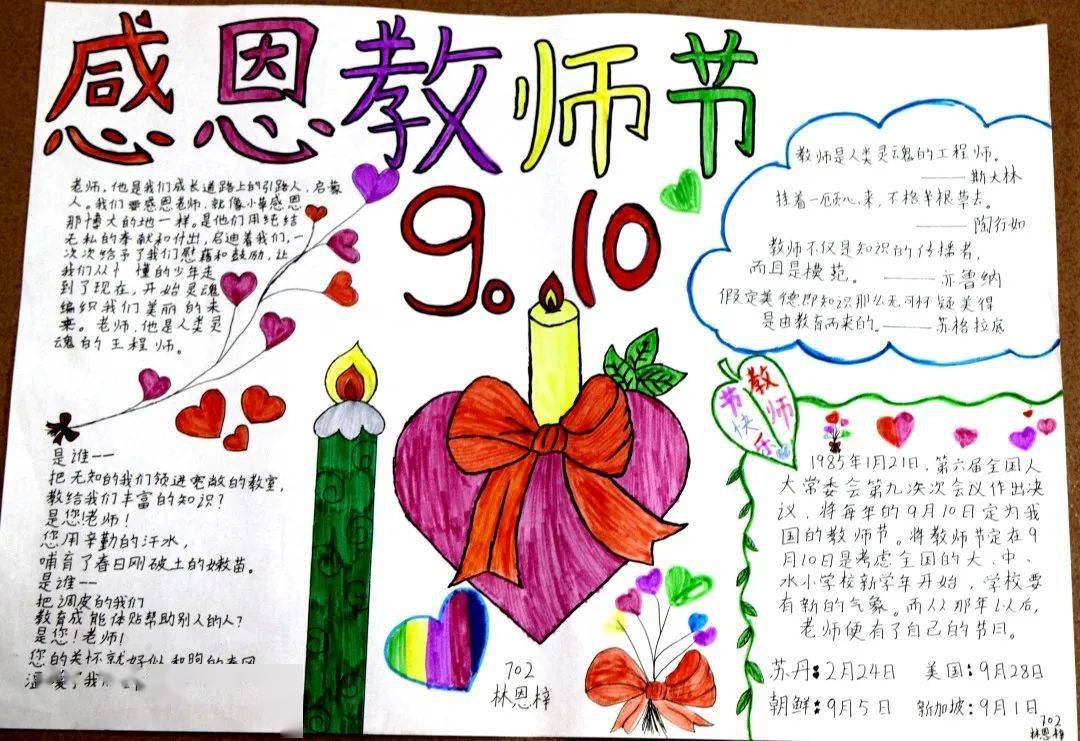 感恩教师节
9.10
老师,他是我们成长道路上的引路人,启蒙
人。我们要感恩老师,就像小草感恩
那博大的地一样。是他们用纯洁
无私的奉献和付出,启迪着我们,一
次次给予了我们慰藉和鼓励,让
我们从忄懂的少年走
到了现在,开始灵魂
编织我们美丽的未
来。老师,他是人类灵
魂的工程师。
教师是人类灵魂的工程师。
——斯大林
捧着一颗心来,不格半根草去。
——陶行如
教师不仅是知识的传播者,
而且是模范。——布鲁纳
假定美德即知识那么无可怀疑美得
是由教育而来的。——苏格拉底
教师
节快乐
是谁——
把无知的我们领进宽敞的教室,
教给我们丰富的知识?
是您!老师!
您用辛勤的汗水,
哺育了春日刚破土的嫩苗。
是谁——
把调皮的我们
教育成能体贴帮助别人的人?
是您!老师!
您的关怀就好似和煦的春风
温暖了我
1985年1月21日,第六届全国人
大常委会第九次次会议作出决
议,将每年的9月10日定为我
国的教师节。将教师节定在9
月10日是考虑全国的大、中、
水小学校新学年开始,学校要
有新的气象。而从那年以后,
老师便有了自己的节日。
苏丹:2月24日 美国:9月28日
朝鲜:9月5日 新加坡:9月1日
702
林恩梓
702
林恩梓